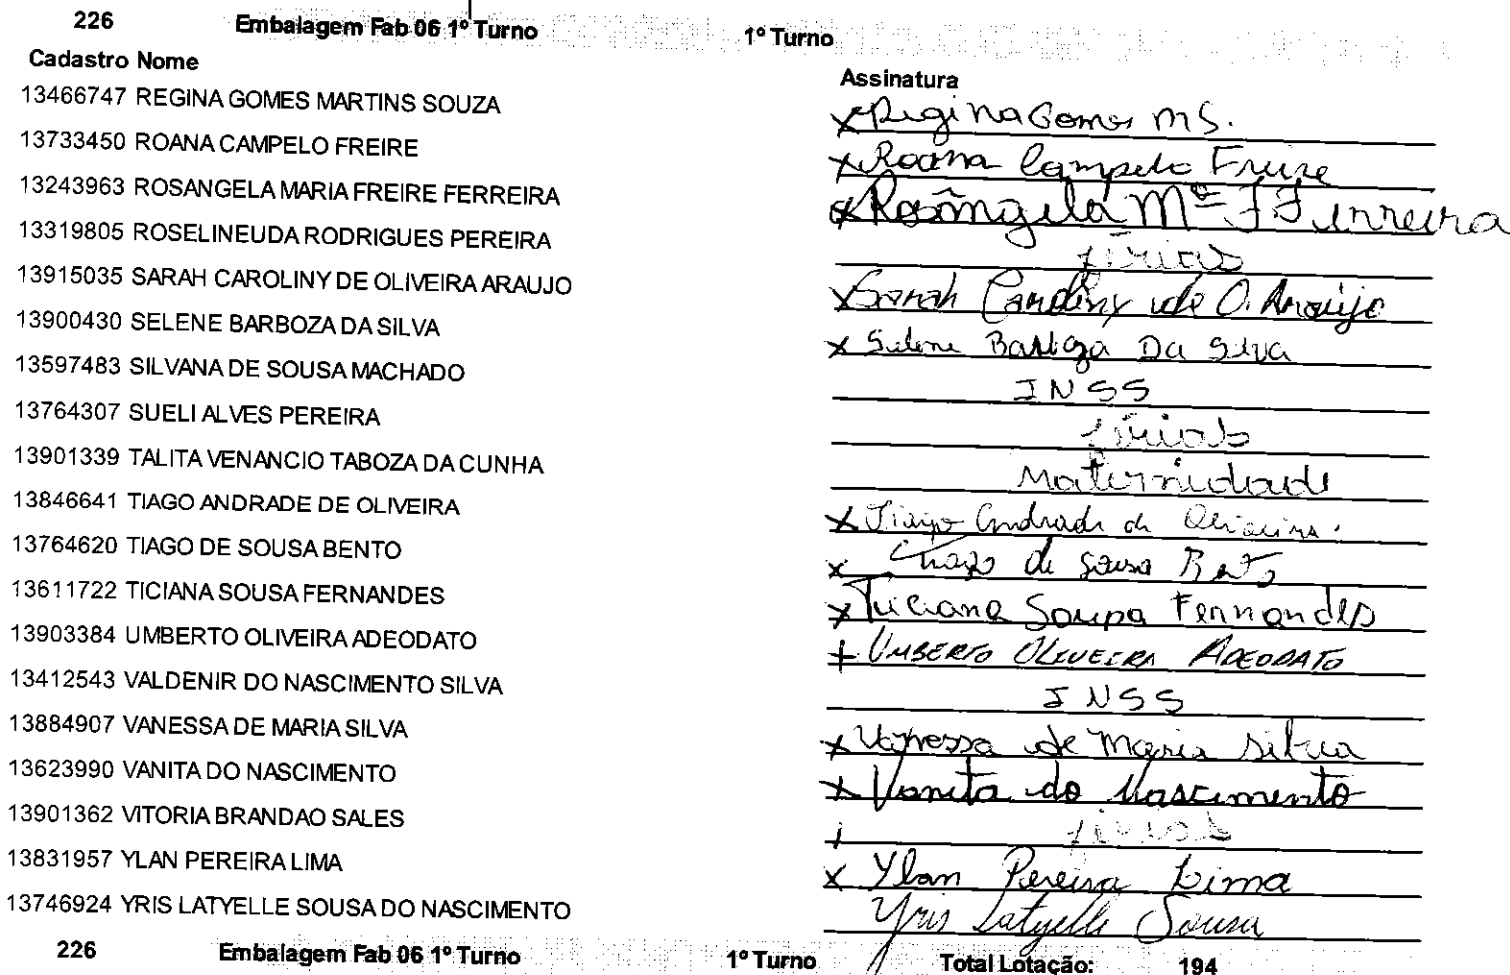 226 Embalagem Fab 06 1º Turno 1º Turno
Cadastro Nome Assinatura
13466747 REGINA GOMES MARTINS SOUZA x Regina Gomes MS.
13733450 ROANA CAMPELO FREIRE x Roana Campelo Freire
13243963 ROSANGELA MARIA FREIRE FERREIRA x Rosângela Mª F Ferreira
13319805 ROSELINEUDA RODRIGUES PEREIRA férias
13915035 SARAH CAROLINY DE OLIVEIRA ARAUJO x Sarah Caroliny de O. Araújo
13900430 SELENE BARBOZA DA SILVA x Selene Barboza Da Silva
13597483 SILVANA DE SOUSA MACHADO INSS
13764307 SUELI ALVES PEREIRA férias
13901339 TALITA VENANCIO TABOZA DA CUNHA Maternidade
13846641 TIAGO ANDRADE DE OLIVEIRA x Tiago Andrade de Oliveira.
13764620 TIAGO DE SOUSA BENTO x Thiago de Sousa Bento
13611722 TICIANA SOUSA FERNANDES x Ticiana Sousa Fernandes
13903384 UMBERTO OLIVEIRA ADEODATO + UMBERTO OLIVEIRA ADEODATO
13412543 VALDENIR DO NASCIMENTO SILVA INSS
13884907 VANESSA DE MARIA SILVA x Vanessa de Maria Silva
13623990 VANITA DO NASCIMENTO x Vanita do Nascimento
13901362 VITORIA BRANDAO SALES férias
13831957 YLAN PEREIRA LIMA x Ylan Pereira Lima
13746924 YRIS LATYELLE SOUSA DO NASCIMENTO Yris Latyelle Sousa
226 Embalagem Fab 06 1º Turno 1º Turno Total Lotação: 194